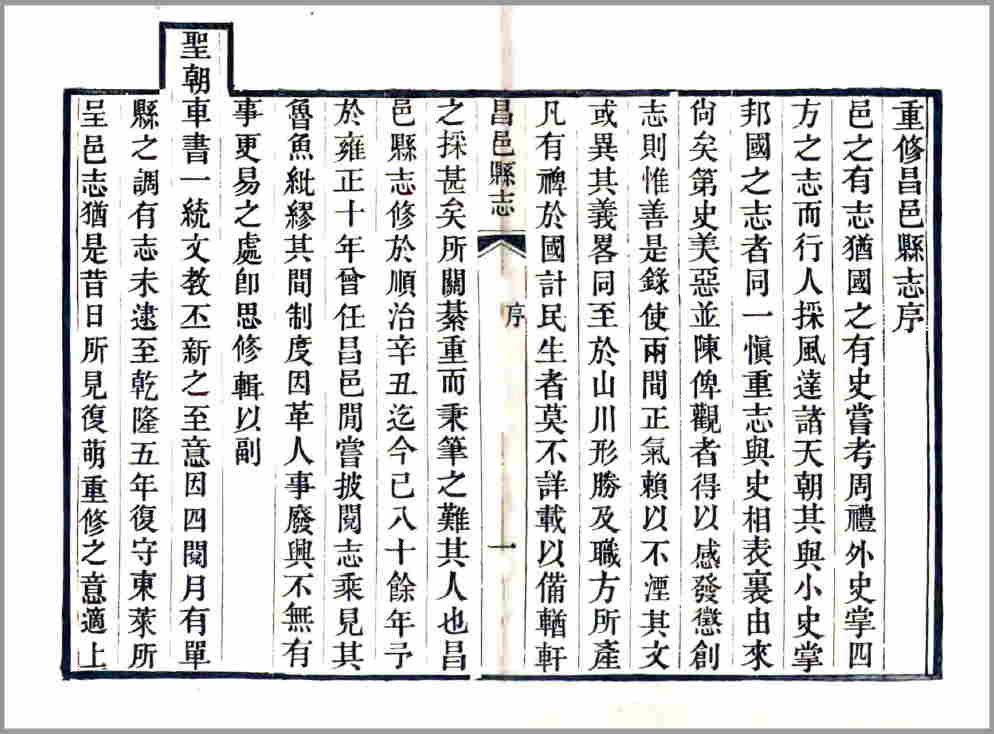 重修昌邑縣志序
邑之有志猶國之有史嘗考周禮外史掌四
方之志而行人採風達諸天朝其與小史掌
邦國之志者同一愼重志與史相表裏由來
尙矣第史美惡並陳俾觀者得以感發懲創
志則惟善是錄使兩間正氣賴以不湮其文
或異其義畧同至於山川形勝及職方所產
凡有裨於國計民生者莫不詳載以備輶軒
昌邑縣志
序
一
之採甚矣所關綦重而秉筆之難其人也昌
邑縣志修於順治辛丑迄今已八十餘年予
於雍正十年曾任昌邑閒嘗披閱志乘見其
魯魚紕繆其間制度因革人事廢興不無有
事更易之處卽思修輯以副
聖朝車書一統文教丕新之至意因四閱月有單
縣之調有志未逮至乾隆五年復守東萊所
呈邑志猶是昔日所見復萌重修之意適上